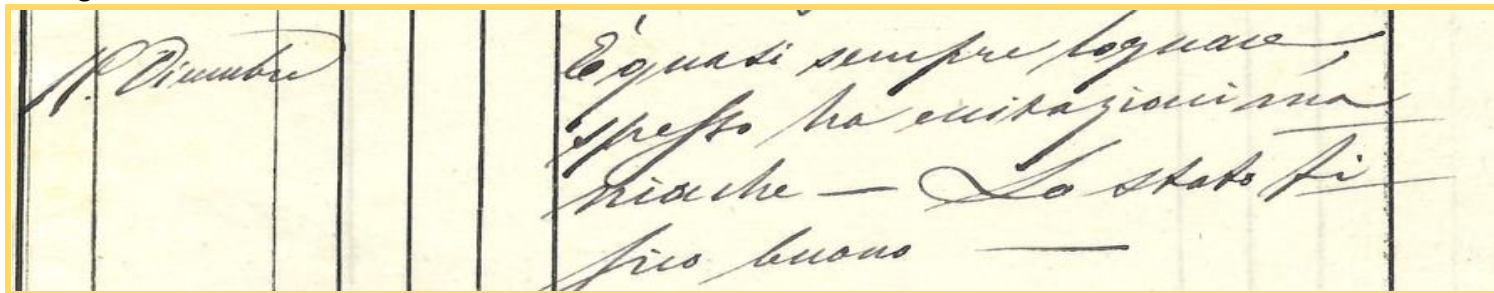 1º Dicembre
È quasi sempre loquace,
spesso ha eccitazioni ma
niache — Lo stato fi
sico buono —